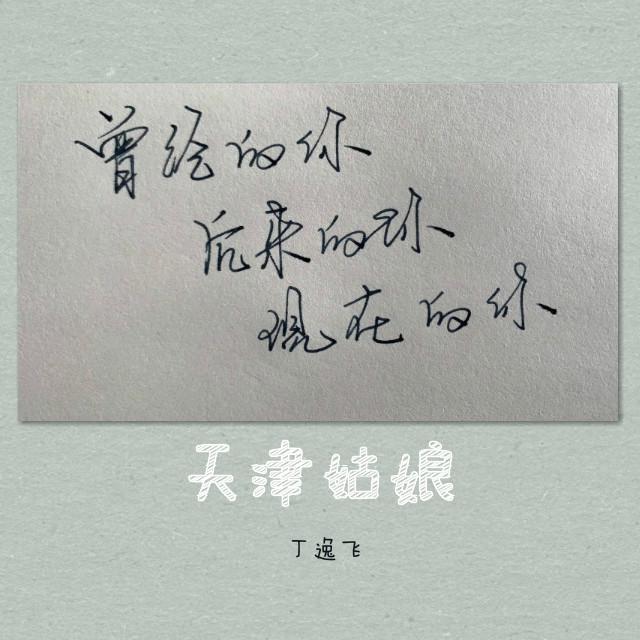 曾经的你
后来的你
现在的你
天津姑娘
丁逸飞